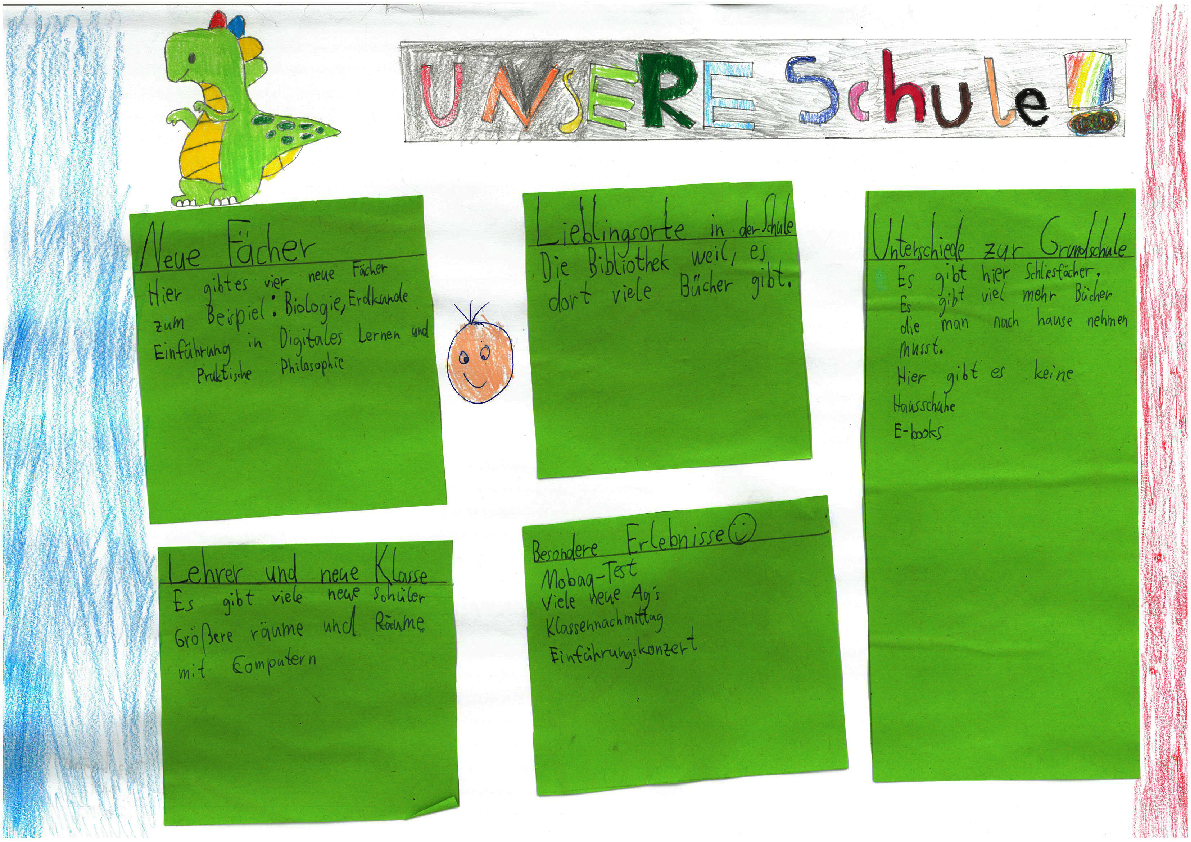 UNSERE Schule!
Neue Fächer
Hier gibt es vier neue Fächer
zum Beispiel: Biologie, Erdkunde
Einführung in Digitales Lernen und
Praktische Philosophie
Lieblingsorte in der Schule
Die Bibliothek weil, es
dort viele Bücher gibt.
Unterschiede zur Grundschule
Es gibt hier Schliesfächer.
Es gibt viel mehr Bücher
die man nach hause nehmen
musst.
Hier gibt es keine
Hausschuhe
E-books
Lehrer und neue Klasse
Es gibt viele neue Schüler
Größere räume und Räume
mit Computern
Besondere Erlebnisse
Mobaq-Test
Viele neue Ag's
Klassennachmittag
Einführungskonzert